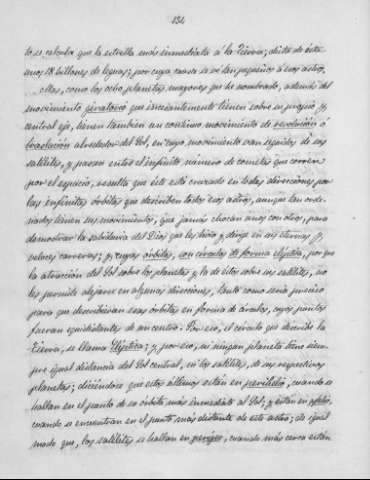 134
to, se calcula que la estrella mas inmediata a la Tierra; dista de ésta
unos 18 billones de leguas; por cuya causa se vé tan pequeños á esos astros.
Mas, como los ocho planetas mayores que he nombrado, además del
movimiento giratorio que incesantemente tienen sobre su propio y
central eje, tienen tambien un continuo movimiento de revolucion ó
traslacion alrededor del Sol, en cuyo movimiento van seguidos de sus
satélites, y pasean entre el infinito número de cometas que corren
por el espacio, resulta que éste está cruzado en todas direcciones por
las infinitas órbitas que describen todos esos astros, aunque tan orde-
nados tienen sus movimientos, que jamás chocan unos con otros, para
demostrar la sabiduria del Dios que les hizo y dirige en sus eternas y
veloces carreras; y cuyas órbitas, son círculos de forma elíptica, por que
la atraccion del Sol sobre los planetas y la de éstos sobre sus satélites, no
les permite alejarse en algunas direcciones, tanto como seria preciso
para que describieran esas órbitas en forma de círculos, cuyos puntos
fueran equidistantes de un centro. Por eso, el círculo que describe la
Tierra, se llama Elíptica; y por eso, ni ningun planeta tiene siem-
pre igual distancia del Sol central, ni los satélites, de sus respectivos
planetas; diciéndose que estos últimos están en perihelio, cuando se
hallan en el punto de su órbita más inmediato al Sol; y están en afelio,
cuando se encuentran en el punto más distante de este astro; de igual
modo que, los satélites se hallan en perigeo, cuando más cerca están